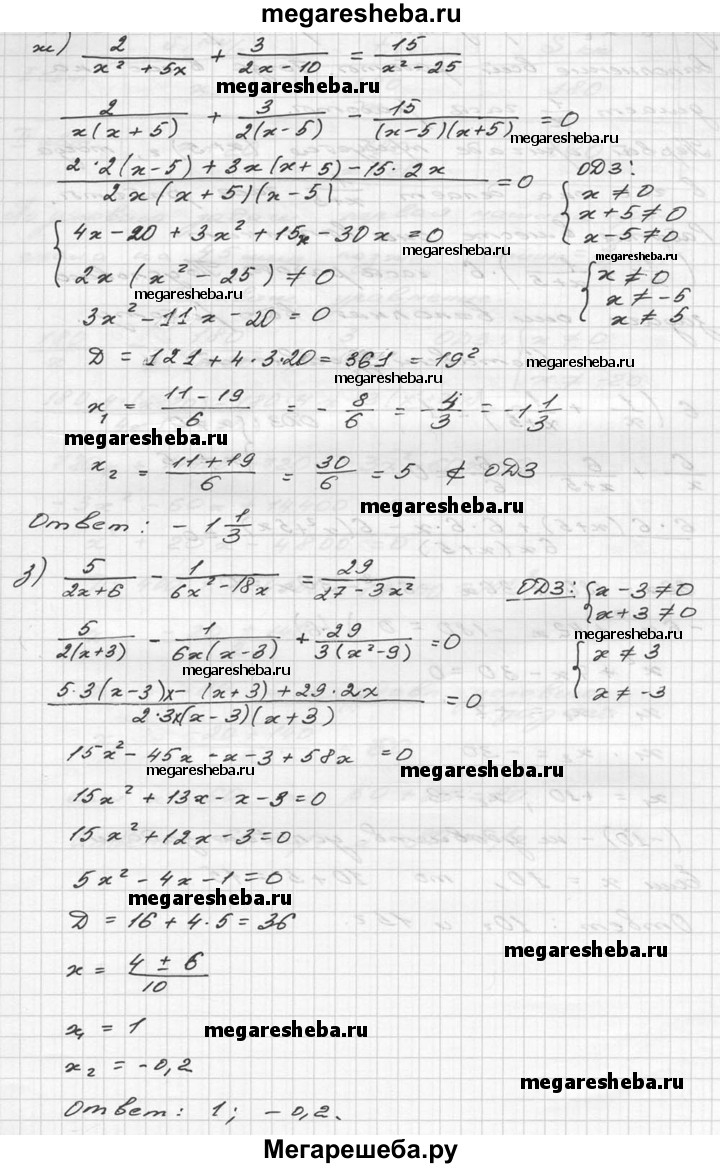 megaresheba.ru
ж) 2/(x² + 5x) + 3/(2x - 10) = 15/(x² - 25)
megaresheba.ru
2/(x(x + 5)) + 3/(2(x - 5)) - 15/((x-5)(x+5)) = 0
megaresheba.ru
(2·2(x-5) + 3x(x+5) - 15·2x)/(2x(x+5)(x-5)) = 0
ОДЗ:
{ x ≠ 0
x + 5 ≠ 0
x - 5 ≠ 0
{ 4x - 20 + 3x² + 15x - 30x = 0
megaresheba.ru
2x(x² - 25) ≠ 0
megaresheba.ru
megaresheba.ru
{ x ≠ 0
x ≠ -5
x ≠ 5
3x² - 11x - 20 = 0
D = 121 + 4·3·20 = 361 = 19²
megaresheba.ru
megaresheba.ru
x₁ = (11 - 19)/6 = - 8/6 = - 4/3 = -1 1/3
megaresheba.ru
x₂ = (11 + 19)/6 = 30/6 = 5 ∉ ОДЗ
megaresheba.ru
Ответ: - 1 1/3
з) 5/(2x+6) - 1/(6x² - 18x) = 29/(27 - 3x²)
ОДЗ: { x - 3 ≠ 0
x + 3 ≠ 0
megaresheba.ru
{ x ≠ 3
x ≠ -3
5/(2(x+3)) - 1/(6x(x-3)) + 29/(3(x²-9)) = 0
megaresheba.ru
(5·3(x-3)x - (x+3) + 29·2x)/(2·3x(x-3)(x+3)) = 0
15x² - 45x - x - 3 + 58x = 0
megaresheba.ru
megaresheba.ru
15x² + 13x - x - 3 = 0
15x² + 12x - 3 = 0
5x² - 4x - 1 = 0
megaresheba.ru
D = 16 + 4·5 = 36
megaresheba.ru
x = (4 ± 6)/10
x₁ = 1
megaresheba.ru
x₂ = -0,2
megaresheba.ru
Ответ: 1; -0,2.
Мегарешеба.ру